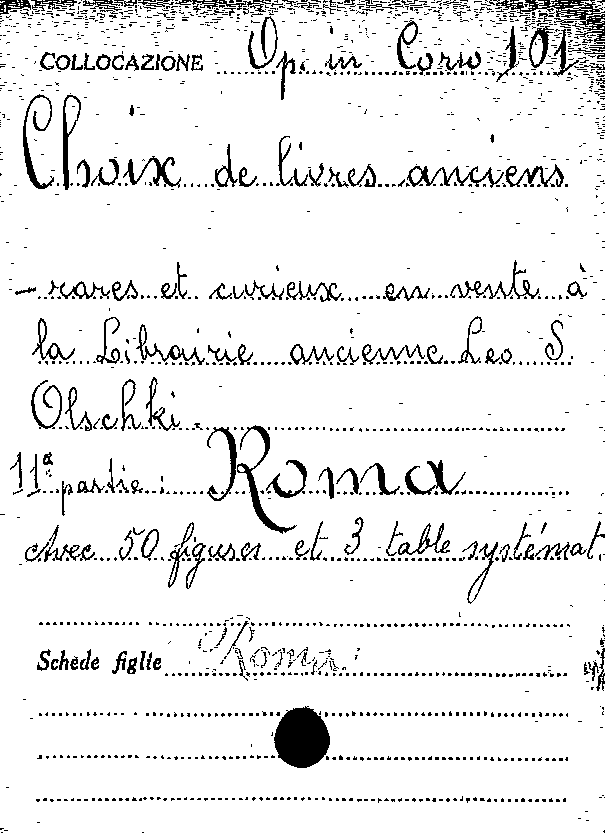 COLLOCAZIONE Op. in Corso 101
Choix de livres anciens
- rares et curieux en vente à
la Librairie ancienne Leo S.
Olschki.
11ª partie: Roma
Avec 50 figures et 3 table systémat.
Schede figlie Roma